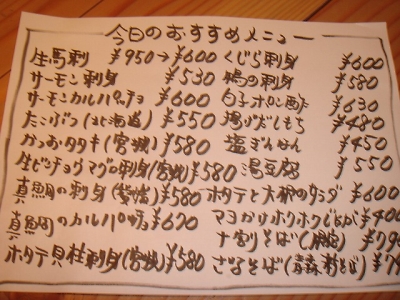 今日のおすすめメニュー
生馬刺 ¥950→¥600
サーモン刺身 ¥530
サーモンカルパッチョ ¥600
たこぶつ(北海道) ¥550
かつおタタキ(宮城) ¥580
生ビンチョウマグロ刺身(宮城) ¥580
真鯛の刺身(愛媛) ¥580
真鯛のカルパッチョ ¥620
ホタテ貝柱刺身(宮城) ¥580
くじら刺身 ¥600
鴨の刺身 ¥580
白子ポン酢 ¥630
揚げだしもち ¥480
塩ぎんなん ¥450
湯豆腐 ¥550
ホタテと大根のサラダ ¥600
マヨかけホクホクじゃが ¥400
十割そば
ざるそば(青森